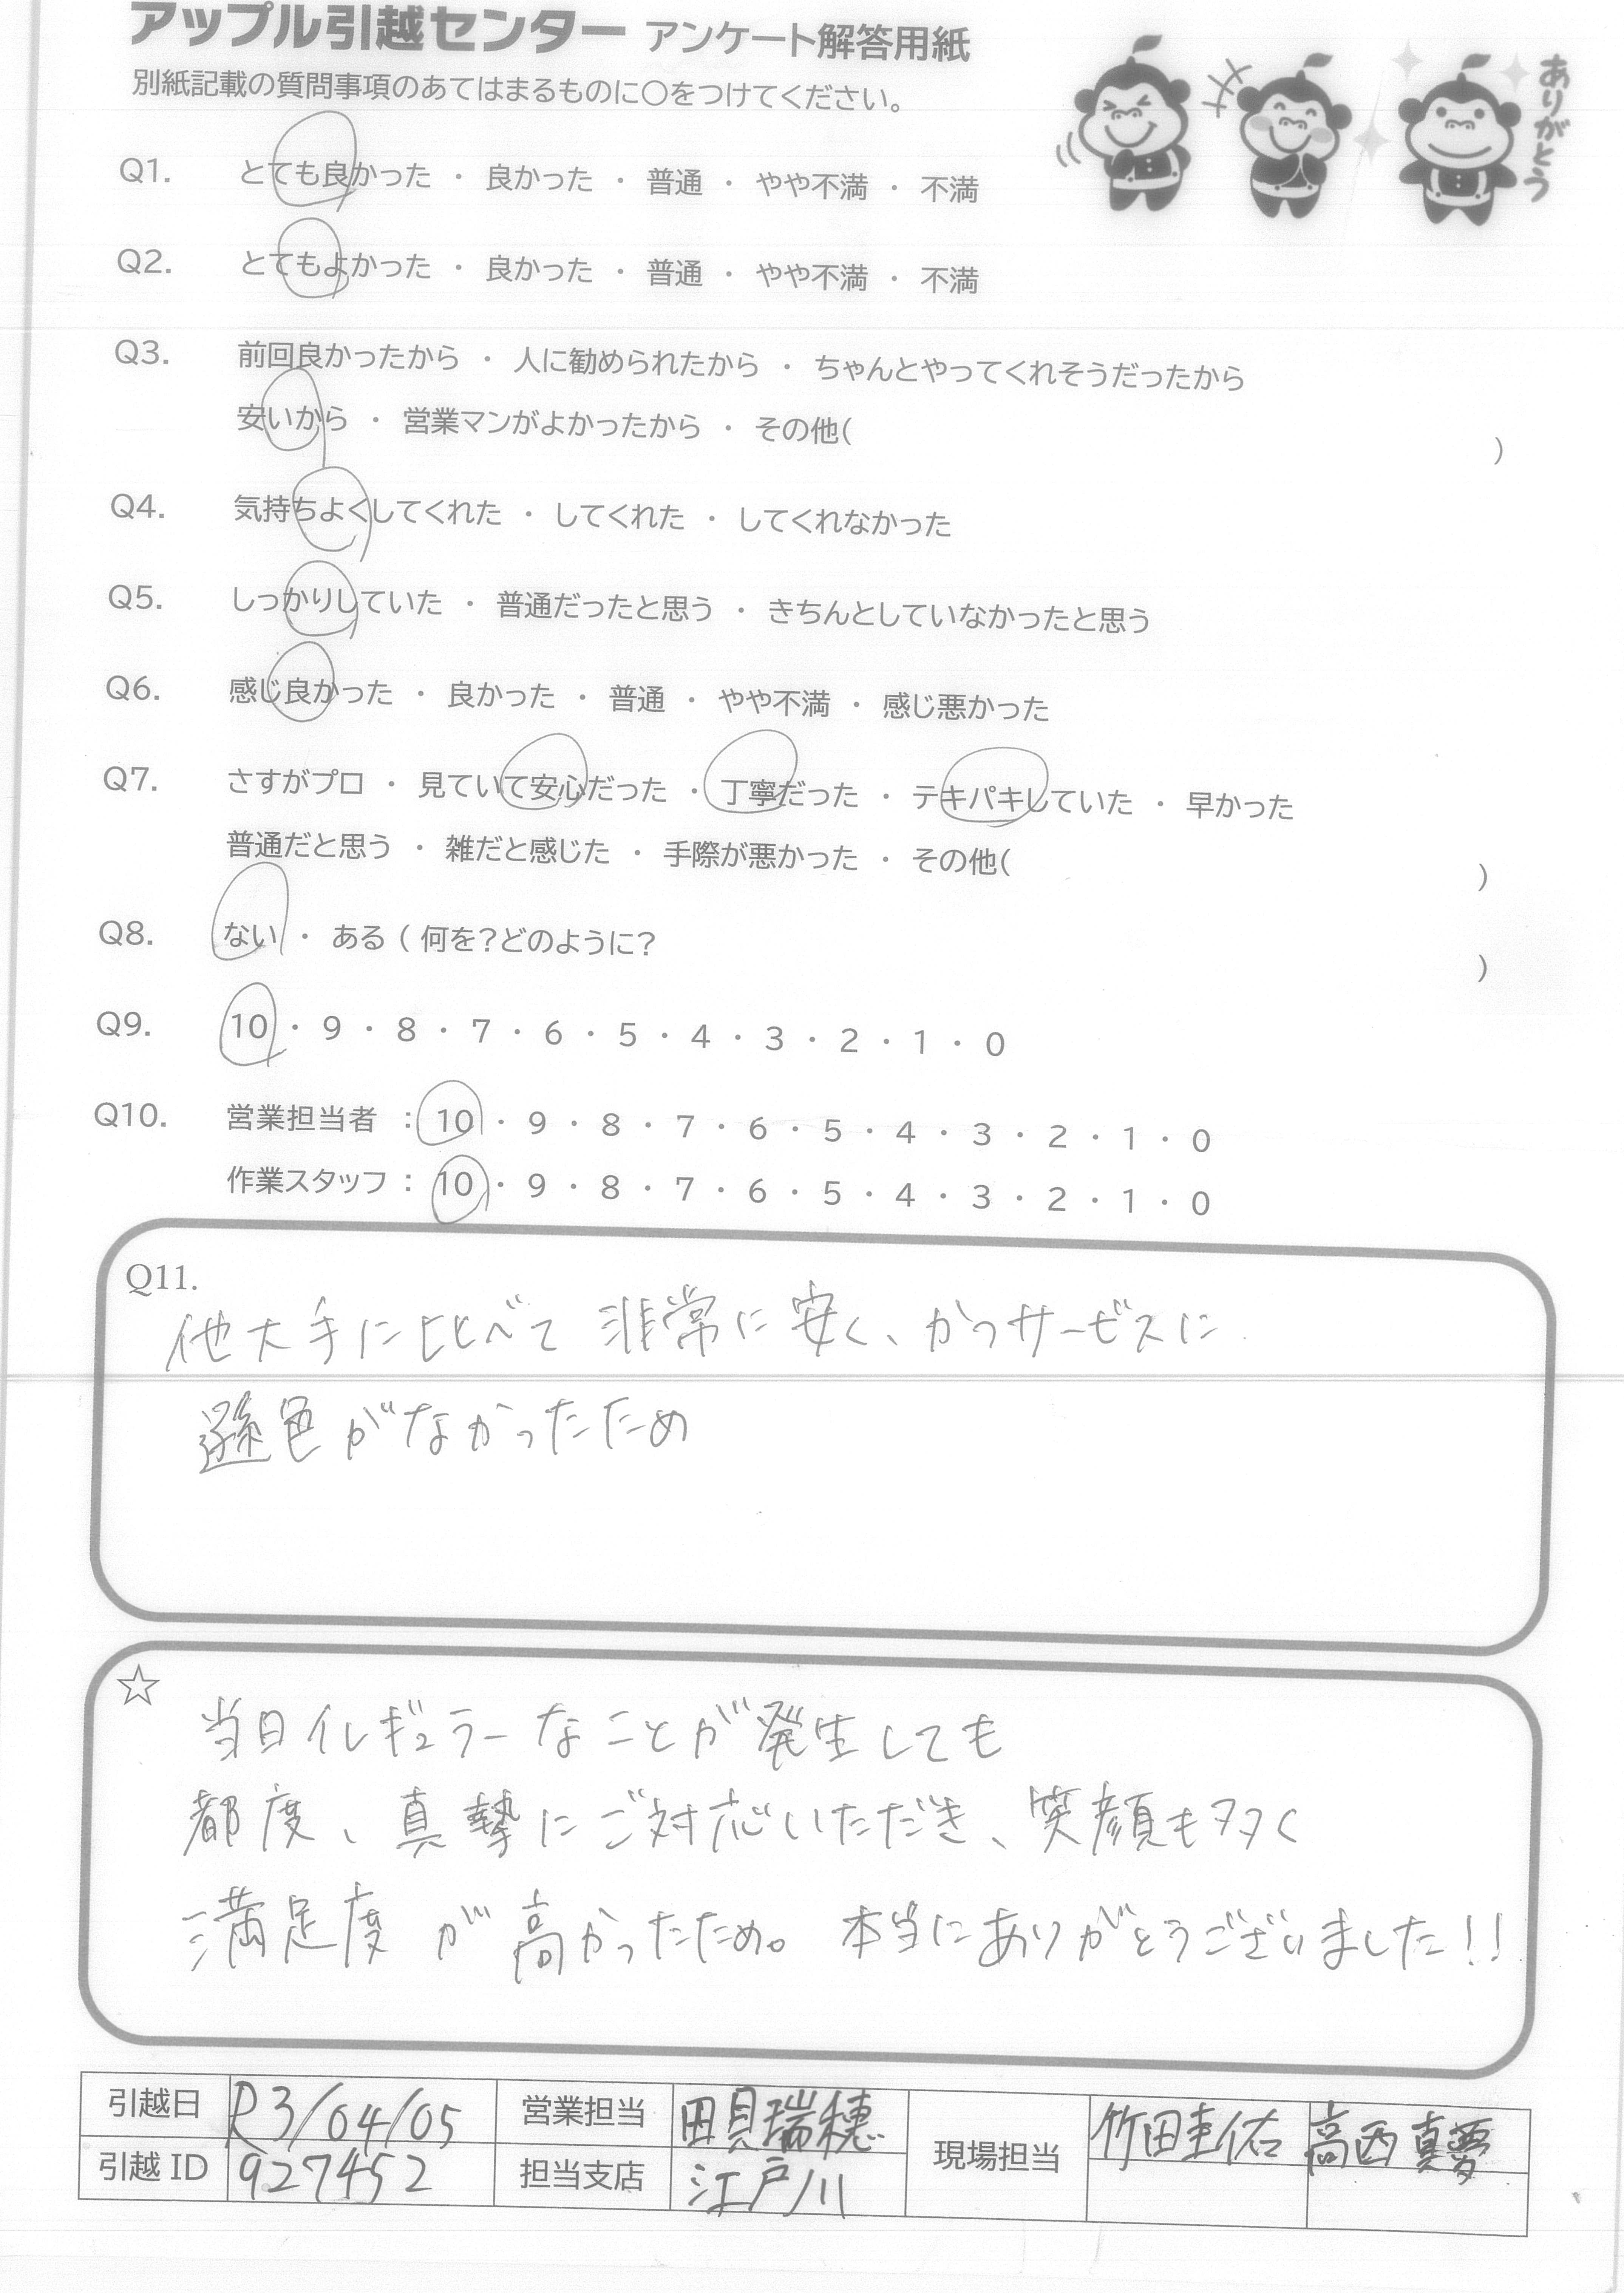 アップル引越センター アンケート解答用紙
別紙記載の質問事項のあてはまるものに○をつけてください。
ありがとう
Q1. とても良かった ・ 良かった ・ 普通 ・ やや不満 ・ 不満
Q2. とてもよかった ・ 良かった ・ 普通 ・ やや不満 ・ 不満
Q3. 前回良かったから ・ 人に勧められたから ・ ちゃんとやってくれそうだったから
安いから ・ 営業マンがよかったから ・ その他( )
Q4. 気持ちよくしてくれた ・ してくれた ・ してくれなかった
Q5. しっかりしていた ・ 普通だったと思う ・ きちんとしていなかったと思う
Q6. 感じ良かった ・ 良かった ・ 普通 ・ やや不満 ・ 感じ悪かった
Q7. さすがプロ ・ 見ていて安心だった ・ 丁寧だった ・ テキパキしていた ・ 早かった
普通だと思う ・ 雑だと感じた ・ 手際が悪かった ・ その他( )
Q8. ない ・ ある ( 何を?どのように? )
Q9. 10 ・ 9 ・ 8 ・ 7 ・ 6 ・ 5 ・ 4 ・ 3 ・ 2 ・ 1 ・ 0
Q10. 営業担当者 : 10 ・ 9 ・ 8 ・ 7 ・ 6 ・ 5 ・ 4 ・ 3 ・ 2 ・ 1 ・ 0
作業スタッフ : 10 ・ 9 ・ 8 ・ 7 ・ 6 ・ 5 ・ 4 ・ 3 ・ 2 ・ 1 ・ 0
Q11.
他大手に比べて非常に安く、かつサービスに
遜色がなかったため
☆
当日イレギュラーなことが発生しても
都度、真摯にご対応いただき、笑顔も多く
満足度が高かったため。本当にありがとうございました!!
引越日 R3/04/05 営業担当 田貝瑞穂 現場担当 竹田圭佑 高西真夢
引越ID 927452 担当支店 江戸川